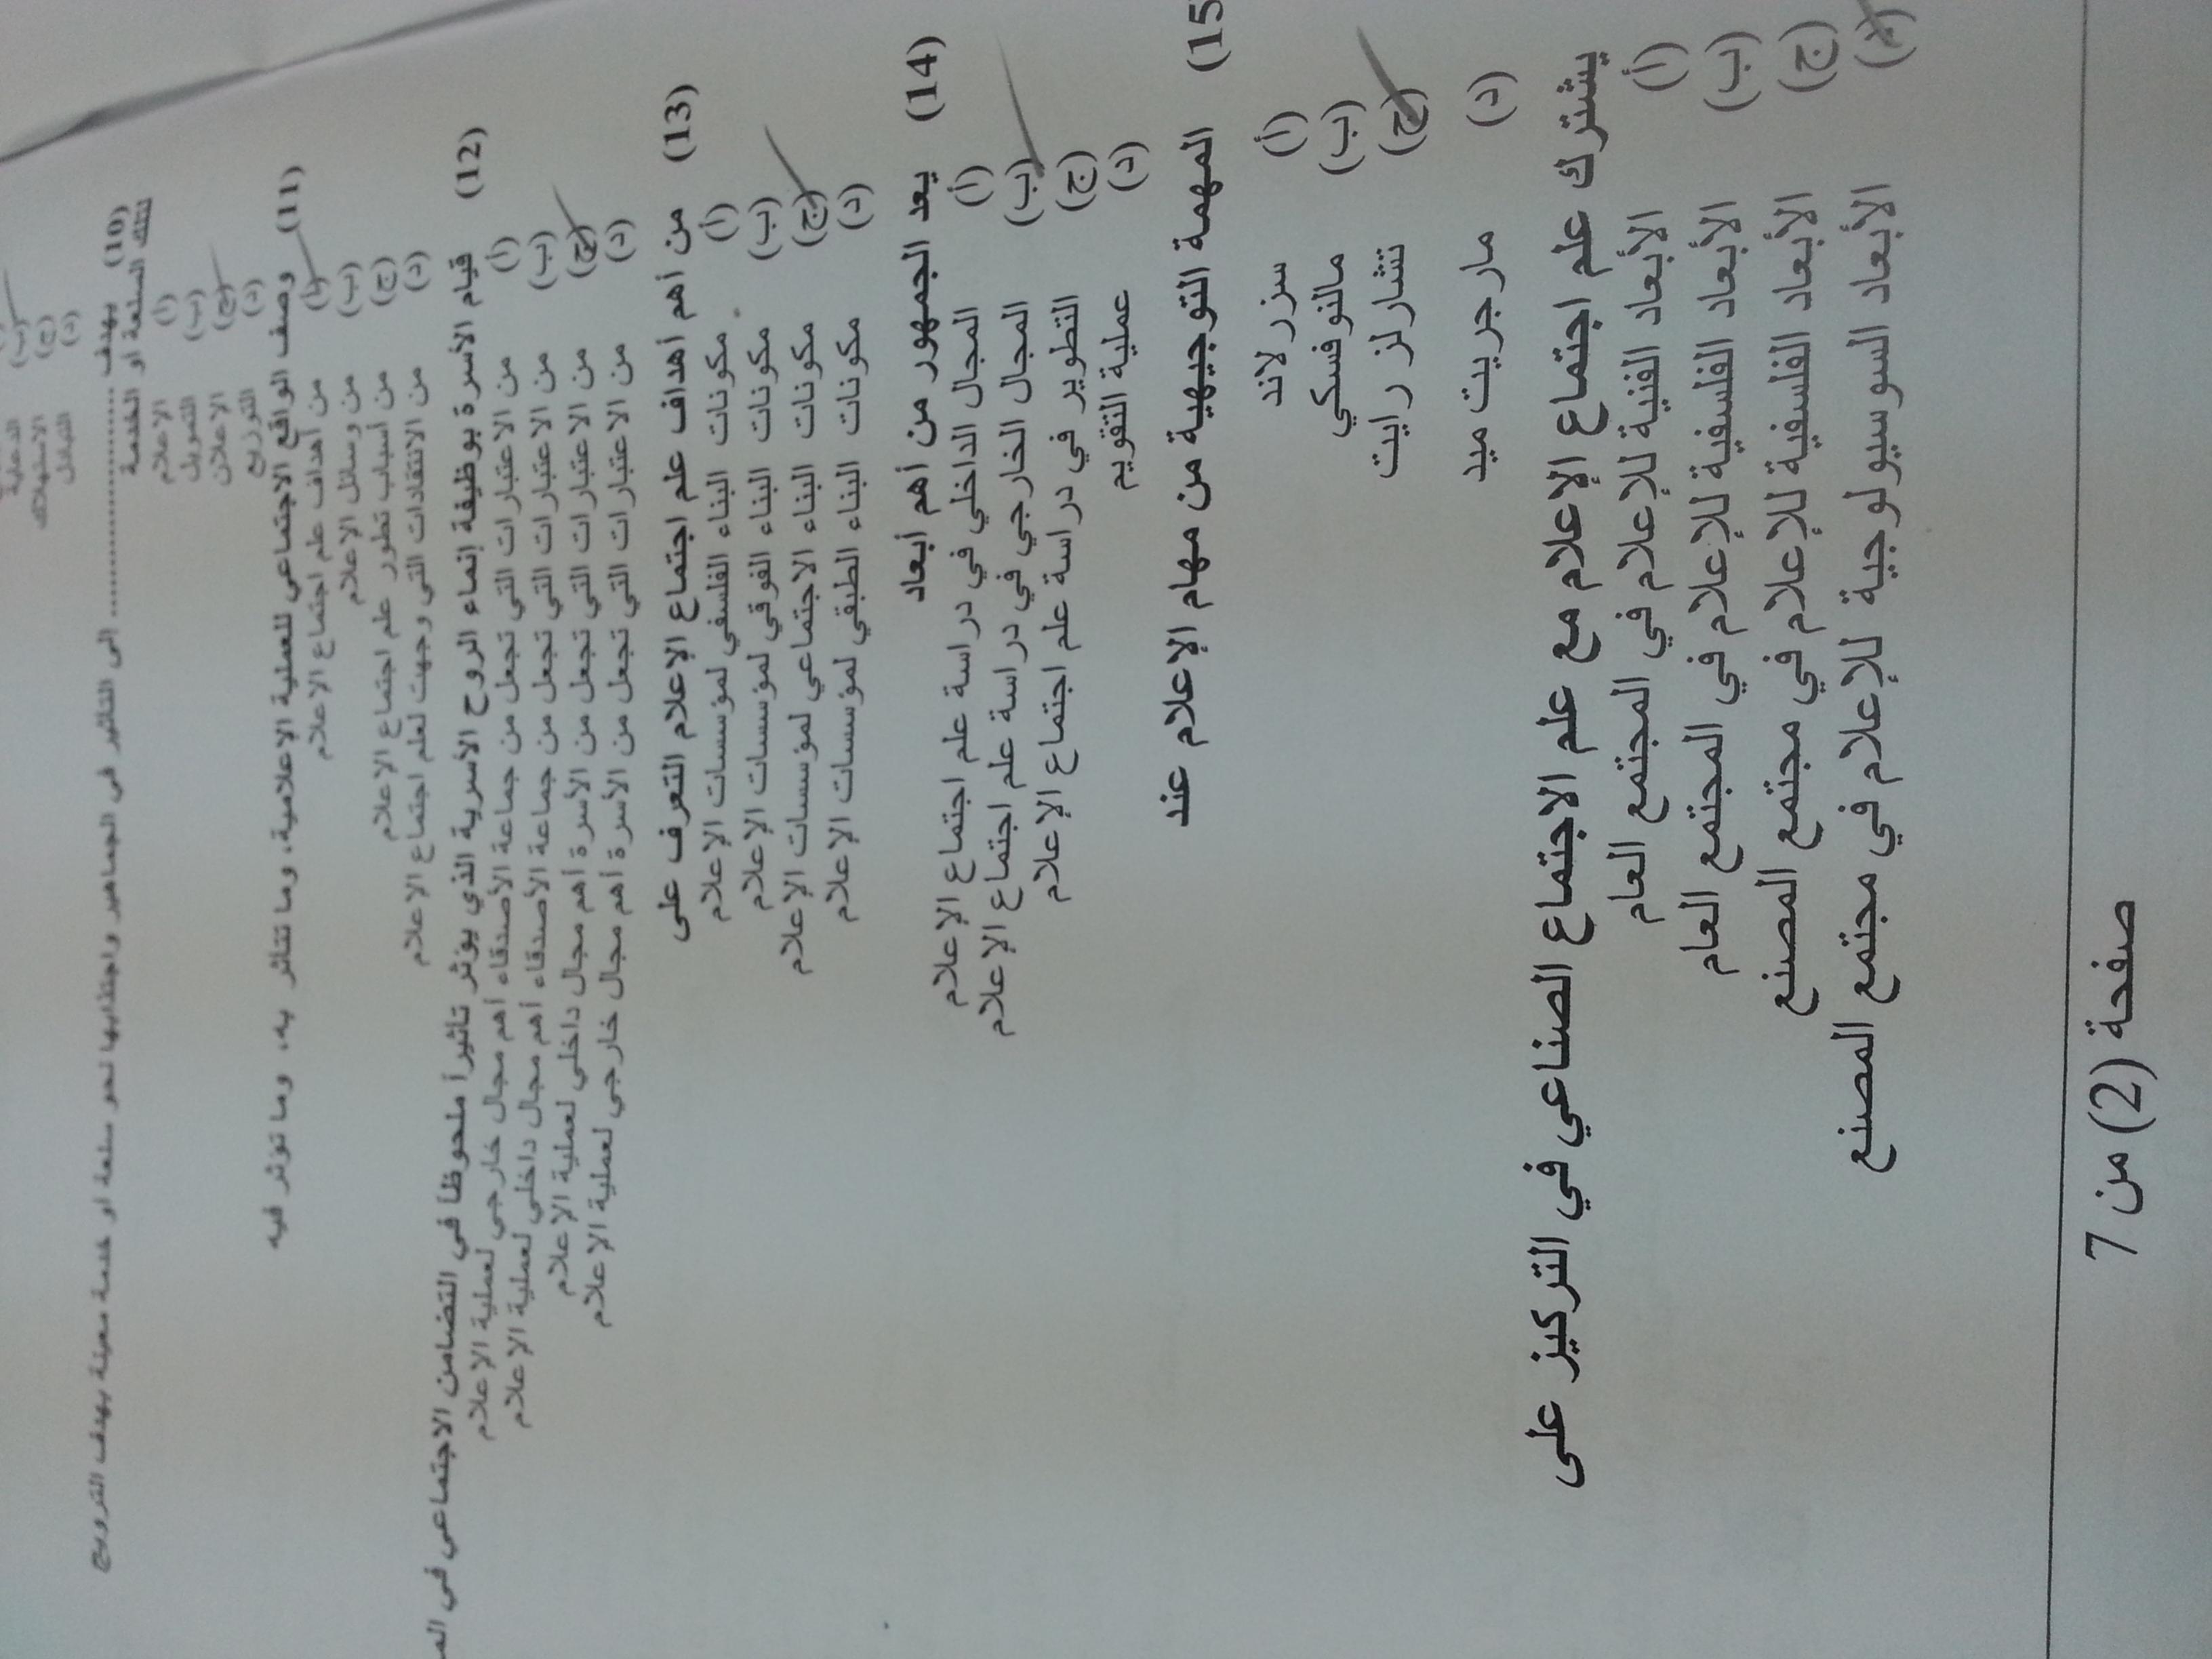 الدعاية
(ب)
الاستهلاك
(ج)
التبادل
(د)
(10) يهدف .................... الى التاثير في الجماهير واجتذابها نحو سلعة او خدمة معينة بهدف الترويج
لتلك السلعة او الخدمة
(أ) الاعلام
(ب) التمويل
(ج) الاعلان
(د) التوزيع
(11) وصف الواقع الاجتماعي للعملية الاعلامية، وما تتاثر به، وما تؤثر فيه
(أ) من أهداف علم اجتماع الاعلام
(ب) من وسائل الاعلام
(ج) من أسباب تطور علم اجتماع الاعلام
(د) من الانتقادات التي وجهت لعلم اجتماع الاعلام
(12) قيام الأسرة بوظيفة إنماء الروح الأسرية الذي يؤثر تاثيراً ملحوظاً في التضامن الاجتماعي في
(أ) من الاعتبارات التي تجعل من جماعة الأصدقاء أهم مجال خارجي لعملية الإعلام
(ب) من الاعتبارات التي تجعل من جماعة الأصدقاء أهم مجال داخلي لعملية الإعلام
(ج) من الاعتبارات التي تجعل من الأسرة أهم مجال داخلي لعملية الإعلام
(د) من الاعتبارات التي تجعل من الأسرة أهم مجال خارجي لعملية الإعلام
(13) من أهم أهداف علم اجتماع الإعلام التعرف على
(أ) مكونات البناء الفلسفي لمؤسسات الإعلام
(ب) مكونات البناء الفوقي لمؤسسات الإعلام
(ج) مكونات البناء الاجتماعي لمؤسسات الإعلام
(د) مكونات البناء الطبقي لمؤسسات الإعلام
(14) يعد الجمهور من أهم أبعاد
(أ) المجال الداخلي في دراسة علم اجتماع الإعلام
(ب) المجال الخارجي في دراسة علم اجتماع الإعلام
(ج) التطوير في دراسة علم اجتماع الإعلام
(د) عملية التقويم
(15 المهمة التوجيهية من مهام الإعلام عند
(أ) سزرلاند
(ب) مالنوفسكي
(ج) تشارلز رايت
(د) مارجريت ميد
يشترك علم اجتماع الإعلام مع علم الاجتماع الصناعي في التركيز على
(أ) الأبعاد الفنية للإعلام في المجتمع العام
(ب) الأبعاد الفلسفية للإعلام في المجتمع العام
(ج) الأبعاد الفلسفية للإعلام في مجتمع المصنع
(د) الأبعاد السوسيولوجية للإعلام في مجتمع المصنع
صفحة (2) من 7